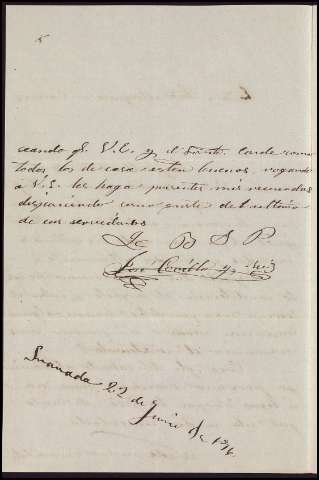 seando qe. V.E. y el Exmto. Conde como
todos los de casa esten buenos, rogando
a V.E. les haga presentes mis recuerdos
disponiendo como guste del ultimo
de sus servidores
Q B S P.
José Castillo y
Granada 22 de Junio de